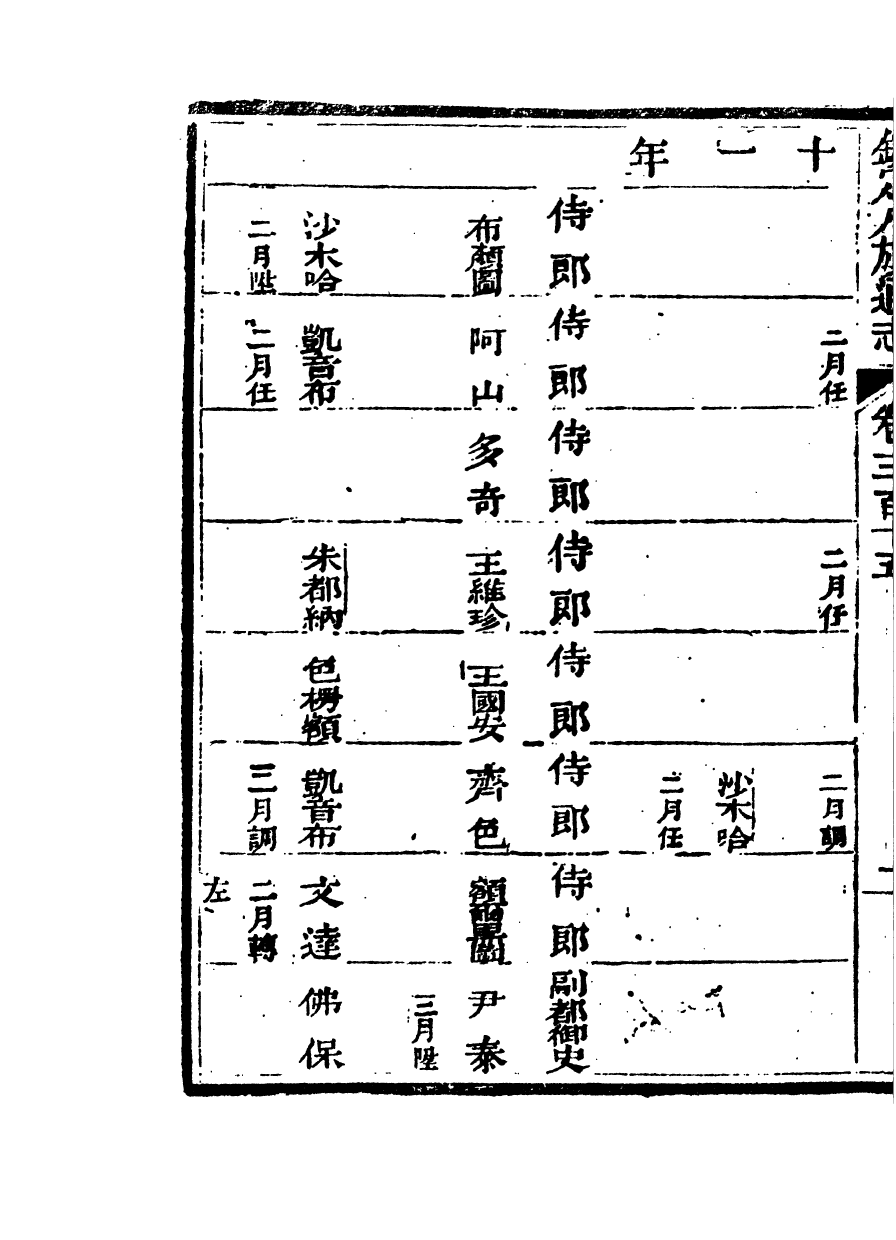 欽定八旗通志 卷三百十五
十一年
二月任
二月任
二月調
沙木哈
二月任
侍郎
侍郎
侍郎
侍郎
侍郎
侍郎
侍郎
副都御史
布顏圖
阿山
多奇
王維珍
王國安
齊色
額爾黑圖
尹泰
三月陞
沙木哈
凱音布
朱都納
色楞額
凱音布
文達
佛保
二月陞
二月任
三月調
二月轉
左